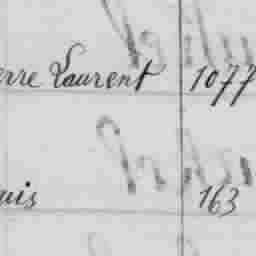 erre Laurent 1077
uis 163